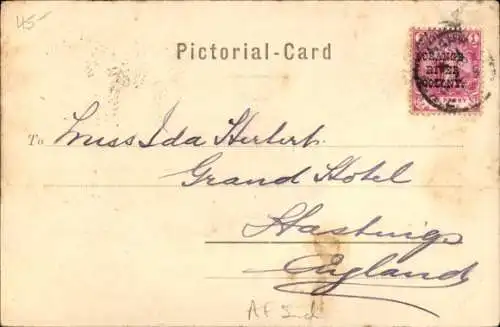 45-
Pictorial-Card
ORANGE
RIVER
COLONY.
To Miss Ida Herbert
Grand Hotel
Hastings
England